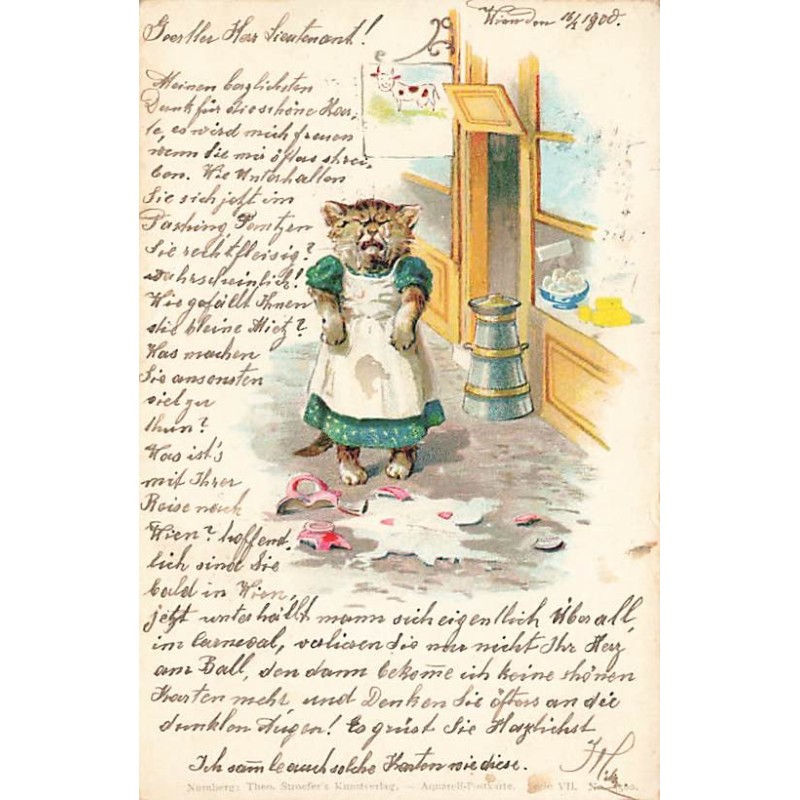 Geehrter Herr Lieutenant!
Wien den 16/1 1900.
Meinen herzlichsten
Dank für die schöne Kar,
te, es wird mich freuen
wenn Sie mir öfters schrei,
ben. Wie Unterhalten
Sie sich jetzt im
Fasching, Tantzen
Sie recht fleisig?
wahrscheinlich!
Wie gefällt Ihnen
die kleine Mietz?
Was machen
Sie ansonsten
viel zu
thun?
Was ist's
mit Ihrer
Reise nach
Wien? hoffend,
lich sind Sie
bald in Wien,
jetzt unterhällt mann sich eigentlich Überall,
im Carneval, verlieren Sie nur nicht Ihr Herz
am Ball, den dann bekom̅e ich keine shönen
Karten mehr, und Denken Sie öfters an die
dunklen Augen! Es grüst Sie Herzlichst
Ich sam̅le auch solche Karten wie diese.
Nürnberg: Theo. Stroefer's Kunstverlag. — Aquarell-Postkarte. Serie VII. No.